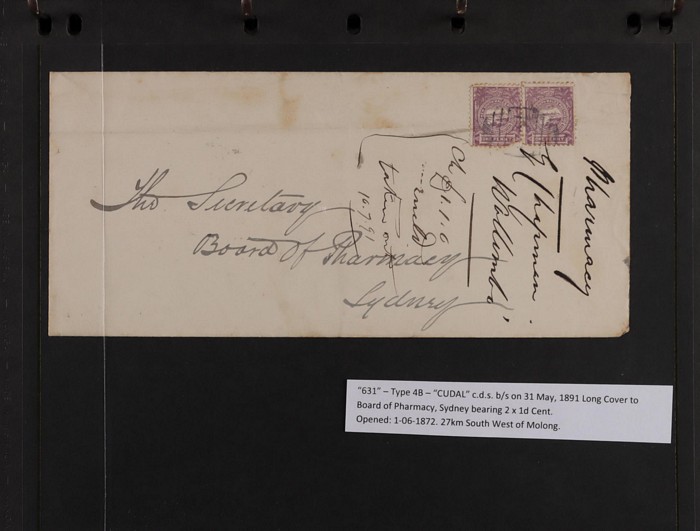 The Secretary
Board of Pharmacy
Sydney
Pharmacy
Chapman
Ch
taken out
10.7.91
"631" – Type 4B – "CUDAL" c.d.s. b/s on 31 May, 1891 Long Cover to
Board of Pharmacy, Sydney bearing 2 x 1d Cent.
Opened: 1-06-1872. 27km South West of Molong.